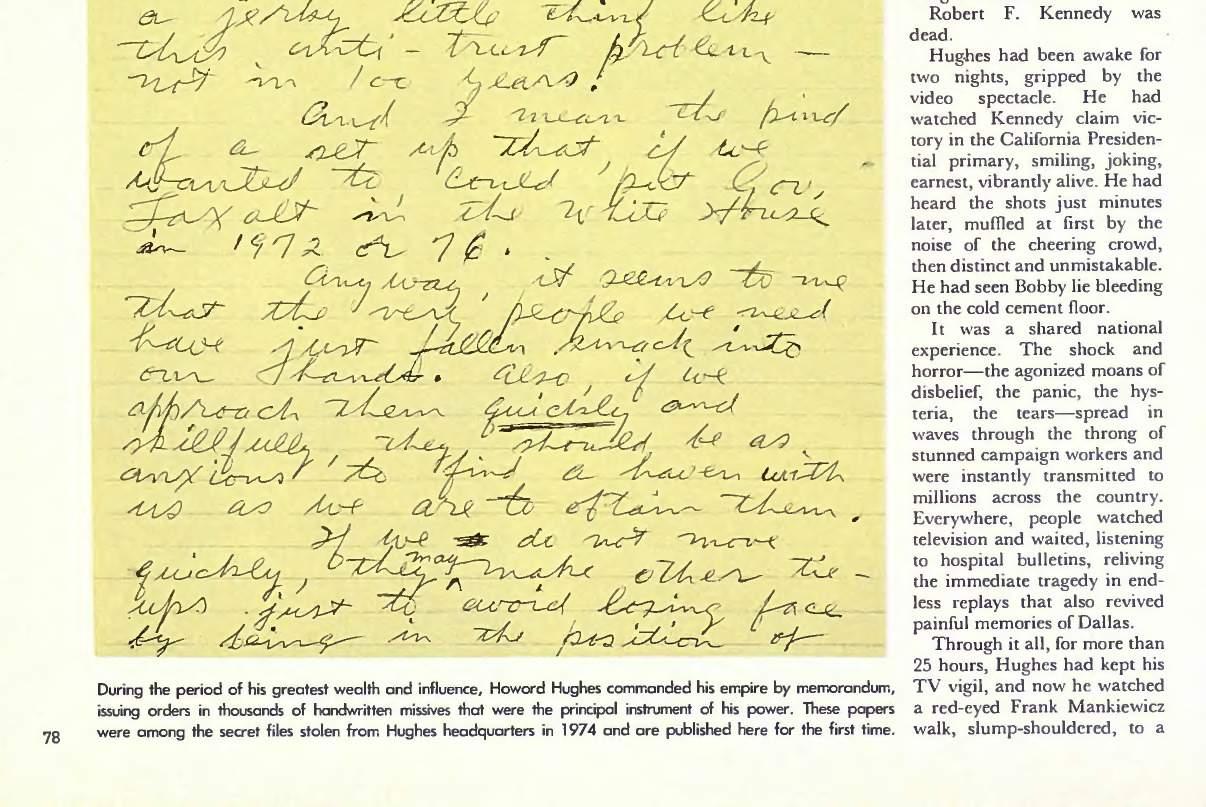 a jerky little thing like
this anti-trust problem —
not in 100 years!
And I mean the kind
of a set up that, if we
wanted to, could put Gov.
Laxalt in the White House
in 1972 or 76.
Anyway, it seems to me
that the very people we need
have just fallen smack into
our hands. Also, if we
approach them quickly and
skillfully, they should be as
anxious to find a haven with
us as we are to obtain them.
If we do not move
quickly, they may make other tie-
ups just to avoid losing face
by being in the position of
During the period of his greatest wealth and influence, Howard Hughes commanded his empire by memorandum,
issuing orders in thousands of handwritten missives that were the principal instrument of his power. These papers
were among the secret files stolen from Hughes headquarters in 1974 and are published here for the first time.
78
Robert F. Kennedy was
dead.
Hughes had been awake for
two nights, gripped by the
video spectacle. He had
watched Kennedy claim vic-
tory in the California Presiden-
tial primary, smiling, joking,
earnest, vibrantly alive. He had
heard the shots just minutes
later, muffled at first by the
noise of the cheering crowd,
then distinct and unmistakable.
He had seen Bobby lie bleeding
on the cold cement floor.
It was a shared national
experience. The shock and
horror—the agonized moans of
disbelief, the panic, the hys-
teria, the tears—spread in
waves through the throng of
stunned campaign workers and
were instantly transmitted to
millions across the country.
Everywhere, people watched
television and waited, listening
to hospital bulletins, reliving
the immediate tragedy in end-
less replays that also revived
painful memories of Dallas.
Through it all, for more than
25 hours, Hughes had kept his
TV vigil, and now he watched
a red-eyed Frank Mankiewicz
walk, slump-shouldered, to a